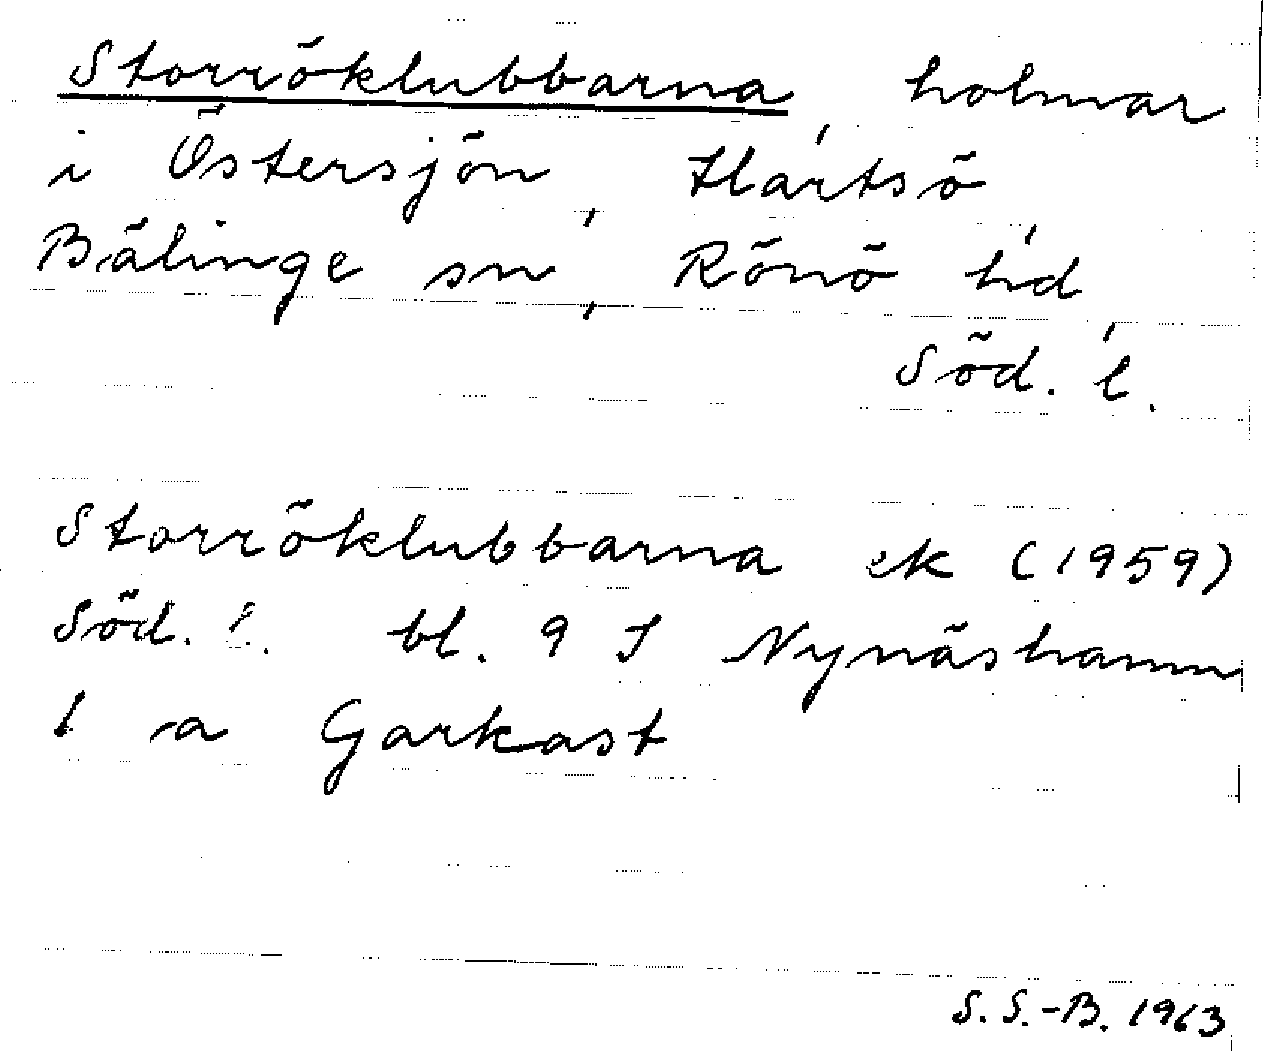 Storröklubbarna, holmar
i Östersjön, Hartsö,
Bälinge sn, Rönö hd,
Söd. l.
Storröklubbarna ek (1959)
Söd. l. bl. 9 I Nynäshamn
l a Garkast
S. S.-B. 1963